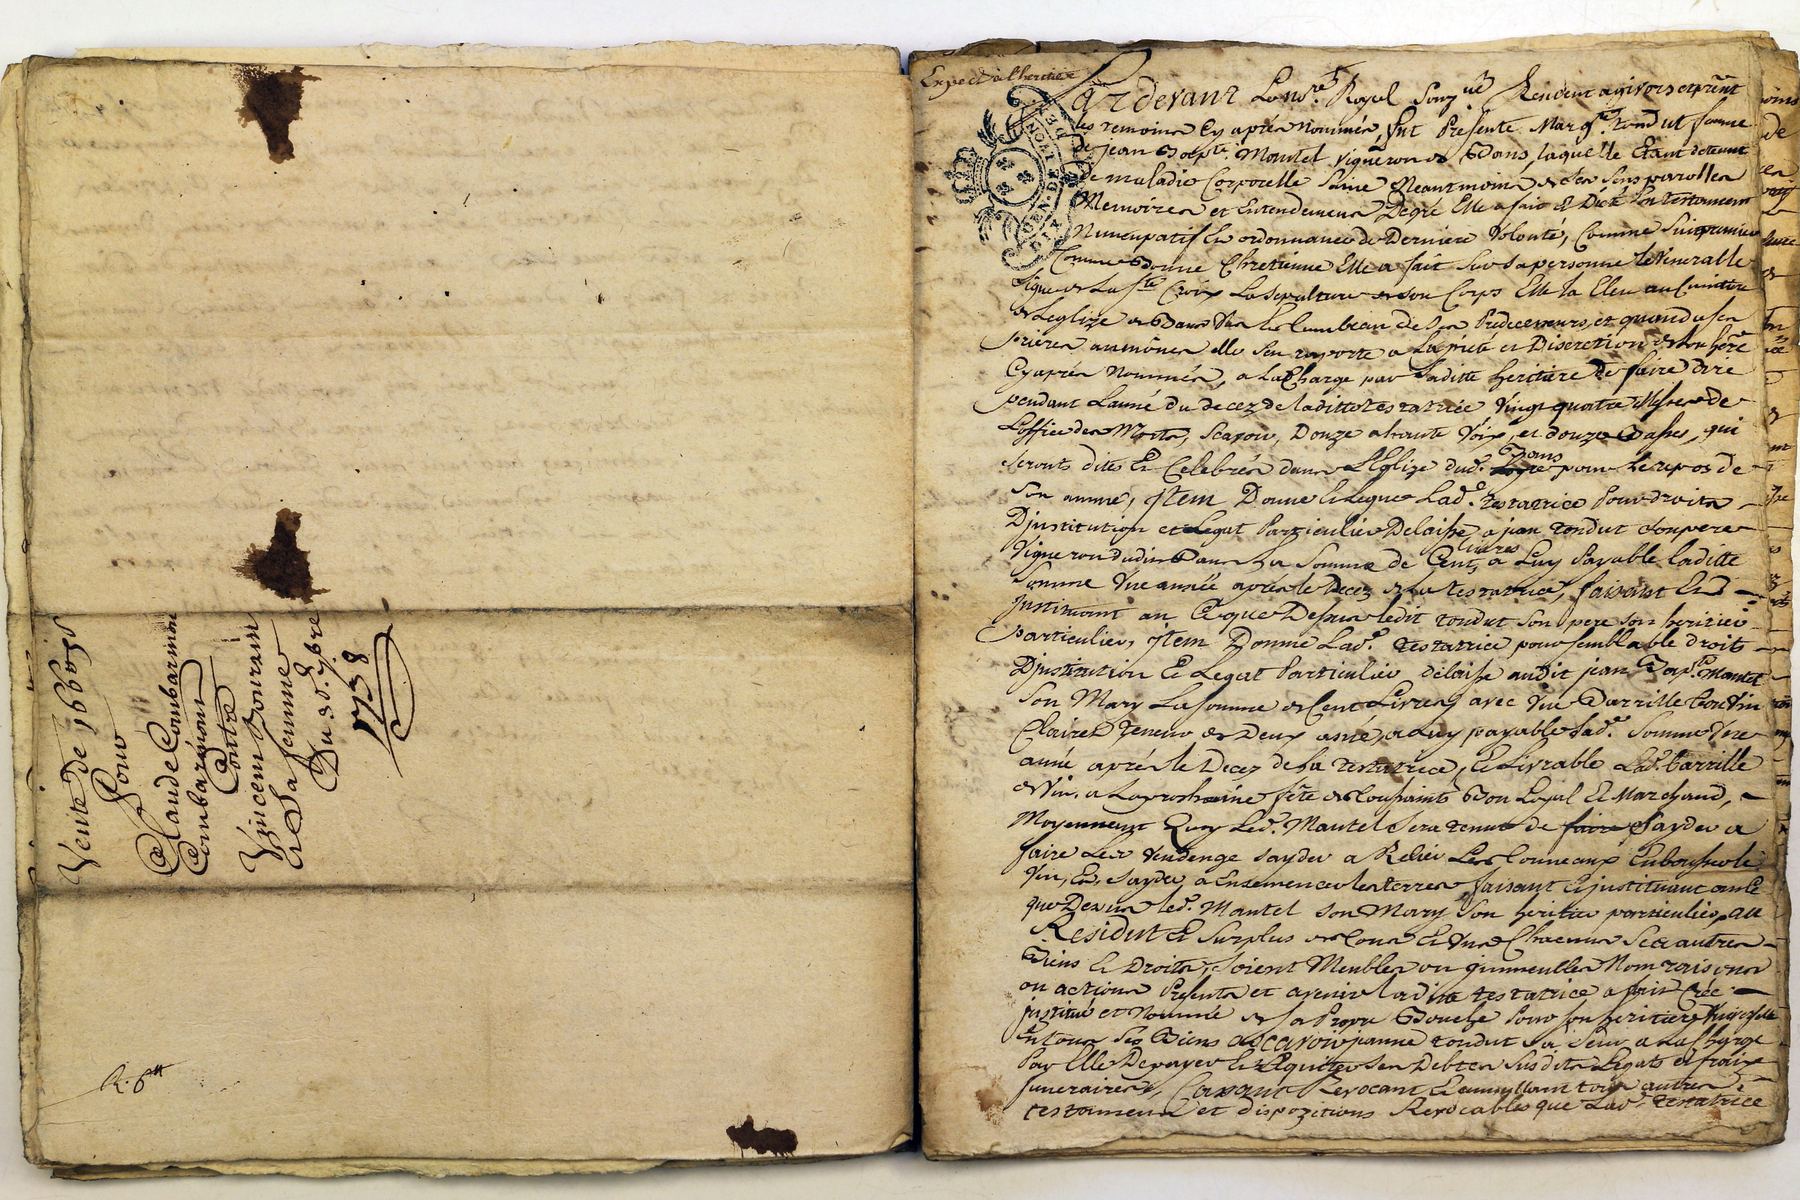 Vente de 166# 13s
Pour
Claude Combarmon
Combarmon
Contre
Vincent
et Sa femme
Du 30. 7bre
1738
R. 6#
Exped a l'heritiere
LYON
GEN DE
Pardevant Le no.re Royal Soug.né Resident a givors et présent
les temoins Cy aprés nommés, fut Presente Marg.te tondut femme
de jean Bapte. Mantel vigneron de Bans, laquelle Etant detenue
de maladie Corporelle Saine Neantmoins de Ses Sens parolles
Memoires et Entendement Degré Elle a fait Et Dicté Son testament
Nuncupatif Et ordonnance de Derniere Volonté, Comme Suit premier
Comme Bonne Chretienne Elle a fait Sur Sa personne le Venerable
Signe de La Ste Croix La Sepulture de Son Corps Elle la Eleu au Cimitiere
de Leglize de Bans dans Le tombeau de Ses Predecesseurs, et quand a Ses
prieres aumônes elle S'en raporte a La pieté et Discretion de Son here
Cyaprés Nommée, a La Charge par Laditte heritiere de faire dire
pendant Lanné du decez de laditte testatrice Vingt quatre Messes de
Loffice des Morts, Scavoir, Douze a haute Voix, et douze Basses, qui
Seronts dites Et Celebrés dans L'Eglize dud. Bans pour le repos de
Son amme, jtem Donne Et Legue Lad.e testatrice Pour droits
Djnstitution et Legat Particulier Delaisse a jean tondut Son pere
Vigneron dudit Bans La Somme de Cent livres a Luy Payable laditte
Somme Une année aprés le Decez de La testatrice, faisant Et
Jnstituant au Ce que Dessus ledit tondut Son pere Son heritier
particulier, jtem Donne Lad.e testatrice pour Semblable droits
Djnstitution Et Legat Particulier délaisse audit jean Bapte. Mantel
Son Mary La Somme de Cent Livres avec Une Barrille bon Vin
Clairet teneur de Deux asnés, a Luy payable Lad.e Somme Une
anné aprés le Decez de La testatrice, Et Livrable Lad.e barrille
de Vin, a La prochaine fête de toussaints Bon Loyal Et Marchand,
Moyennant Quoy Led. Mantel Sera tenut de Sayder a
faire Les Vendenge Sayder a Relier Les tonneaux
Vin, Et Sayder a Ensemencer les terres faisant Et jnstituant au Ce
que Dessus led. Mantel Son Mary Son heritier particulier, au
Residut Et Surplus de tous Et Uns Chacuns Ses autres
Biens Et Droits, Soient Meubles ou jmmeubles Noms raisons
ou actions Presents et avenir ladite testatrice a fait Créé
jnstitué et Nommé de Sa Propre Bouche Pour Son heritiere Universelle
En tous Ses Biens Scavoir jeanne tondut Sa Seur a La Charge
Par Elle De payer Et Aquitter Ses Debtes Susdits Legats et fraix
funeraires, Cassant Revocant Et annullant tous autres
testaments et dispozitions Revocables que Lad.e testatrice